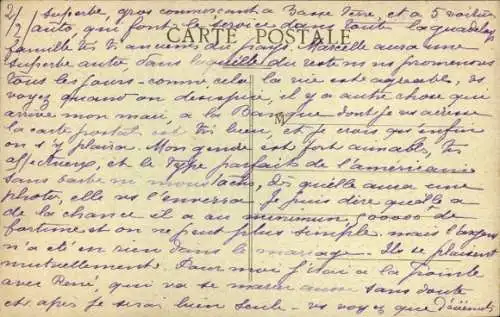 2/2 superbe, gros commerçant à Basse Terre, et a 5 voitures
auto, qui font le service dans toute la guadeloupe
CARTE POSTALE
famille très ancienne du pays. Marcelle aura une
superbe auto dans laquelle du reste ns ns promenons
tous les jours - comme cela la vie est agréable, vs
voyez quand on désespère, il y a autre chose qui
arrive mon mari, a la Banque dont je vs adresse
la carte postale est très bien, et je crois qu'enfin
on s'y plaira. Mon gendre est fort aimable, très
affectueux, et le type parfait de l'américain
sans barbe ni moustache, dès qu'elle aura une
photo, elle vs l'enverra. Je puis dire qu'elle a
de la chance il a au minimum 500000 de
fortune et on ne peut plus simple. mais l'argent
n'a été en rien dans le mariage. Ils se plaisent
mutuellement. Pour moi j'étais à la Pointe
avec René, qui va se marier aussi sans doute
et après je serai bien seule - vs voyez que d'événements
M